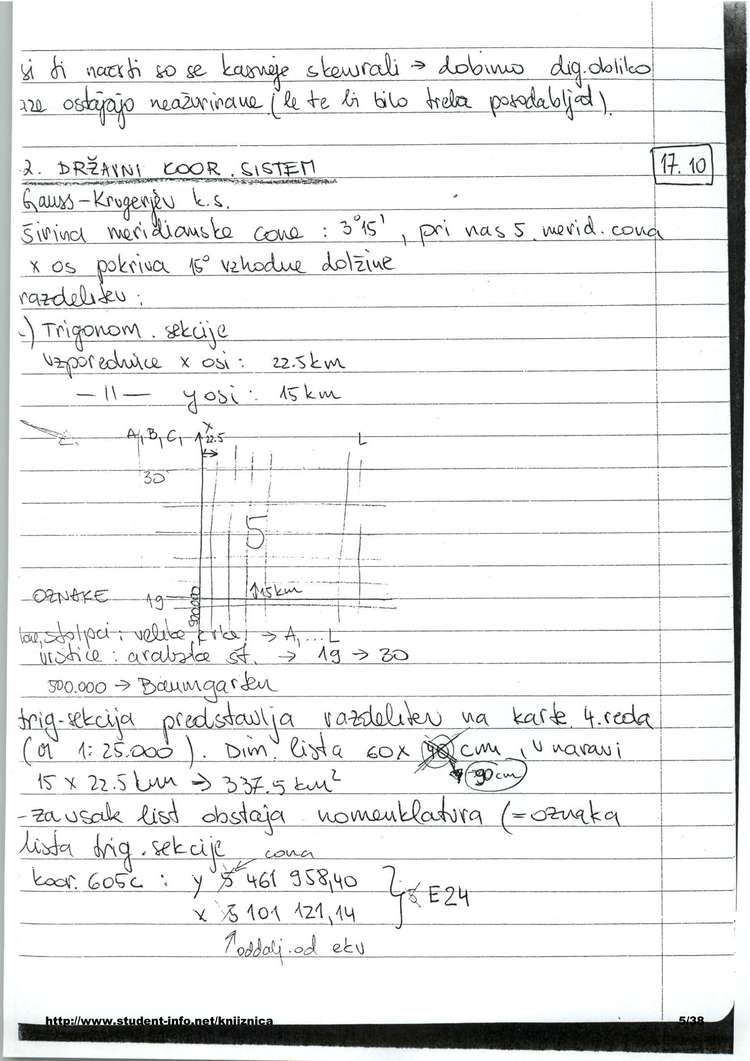 si ti načrti so se kasneje skenirali → dobimo dig. obliko
ostajajo neažurirane (le te bi bilo treba posodabljat).
2. DRŽAVNI KOOR. SISTEM
17.10
Gauss-Krugerjev k.s.
širina meridianske cone : 3°15', pri nas 5. merid. cona
x os pokriva 15° vzhodne dolžine
razdelitev:
.) Trigonom. sekcije
vzporednice x osi : 22.5 km
— 11 — y osi : 15 km
A, B, C, x L
22.5
30
5
OZNAKE 19 500.000 ↑15km
stolpci : velike črke → A, ... L
vrstice : arabske št. → 19 → 30
500.000 → Baumgarten
trig-sekcija predstavlja razdelitev na karte 4. reda
( 1: 25.000 ). Dim. lista 60 x 40 cm, v naravi
90 cm
15 x 22.5 km → 337.5 km²
- za vsak list obstaja nomenklatura (= oznaka
lista trig. sekcije
cona
koor. 605c : y 5 461 958,40
x 5 101 121,14
5 E24
↑ oddalj. od ekv
http://www.student-info.net/knjiznica
5/38